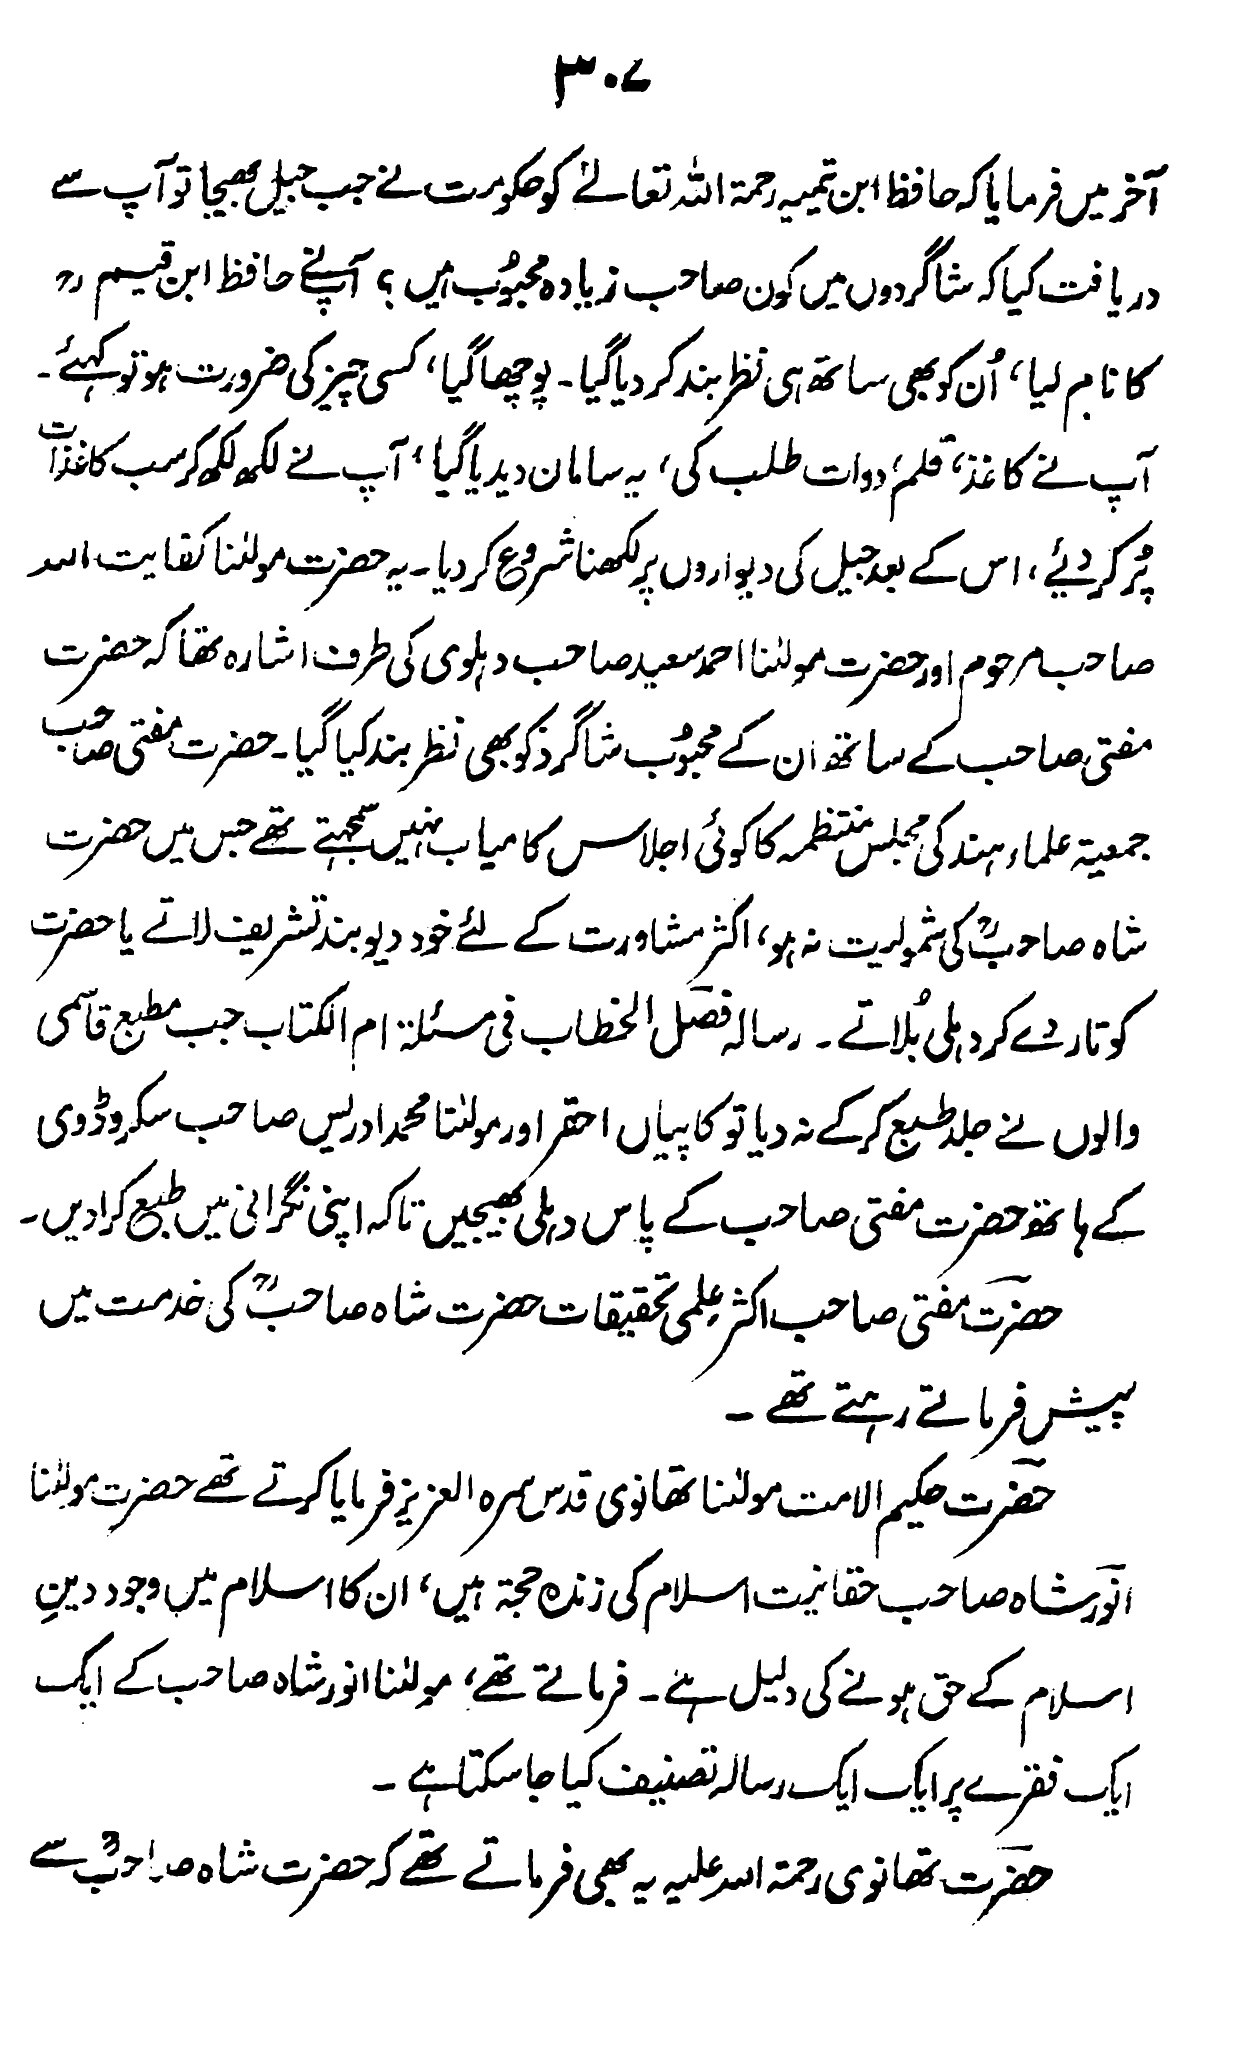 ۳۰۷
آخر میں فرمایا کہ حافظ ابن تیمیہ رحمۃ اللہ تعالےٰ کو حکومت نے جب جیل بھیجا تو آپ سے
دریافت کیا کہ شاگردوں میں کون صاحب زیادہ محبوُب ہیں ؟ آپنے حافظ ابن قیم رح
کا نام لیا، اُن کو بھی ساتھ ہی نظر بند کر دیا گیا۔ پوچھا گیا، کسی چیز کی ضرورت ہو تو کہئے۔
آپ نے کاغذ، قلم، دوات طلب کی، یہ سامان دیدیا گیا، آپ نے لکھ لکھ کر سب کاغذات
پُر کر دیئے، اس کے بعد جیل کی دیواروں پر لکھنا شروع کر دیا۔ یہ حضرت مولٰنا کفایت اللہ
صاحب مرحوم اور حضرت مولٰنا احمد سعید صاحب دہلوی کی طرف اشارہ تھا کہ حضرت
مفتی صاحب کے ساتھ ان کے محبوُب شاگرد کو بھی نظر بند کیا گیا۔ حضرت مفتی صاحب
جمعیۃ علماء ہند کی مجلس منتظمہ کا کوئی اجلاس کامیاب نہیں سمجہتے تھے جس میں حضرت
شاہ صاحبؒ کی شمولیت نہ ہو، اکثر مشاورت کے لئے خود دیوبند تشریف لاتے یا حضرت
کو تار دے کر دہلی بُلاتے ۔ رسالہ فصل الخطاب فی مسئلۃ ام الکتاب جب مطبع قاسمی
والوں نے جلد طبع کر کے نہ دیا تو کاپیاں احقر اور مولٰنا محمد ادریس صاحب سکروڈوی
کے ہاتھ حضرت مفتی صاحب کے پاس دہلی بھیجیں تاکہ اپنی نگرانی میں طبع کرا دیں۔
حضرت مفتی صاحب اکثر علِمی تحقیقات حضرت شاہ صاحبؒ کی خدمت میں
پیش فرماتے رہتے تھے ۔
حضرت حکیم الامت مولٰنا تھانوی قدس سرہ العزیز فرمایا کرتے تھے حضرت مولٰنا
انور شاہ صاحب حقانیت اسلام کی زندہ حجۃ ہیں، ان کا اسلام میں وجود دینِ
اسلام کے حق ہونے کی دلیل ہے ۔ فرماتے تھے، مولٰنا انور شاہ صاحب کے ایک
ایک فقرے پر ایک ایک رسالہ تصنیف کیا جا سکتا ہے ۔
حضرت تھانوی رحمۃ اللہ علیہ یہ بھی فرماتے تھے کہ حضرت شاہ صاحبؒ سے